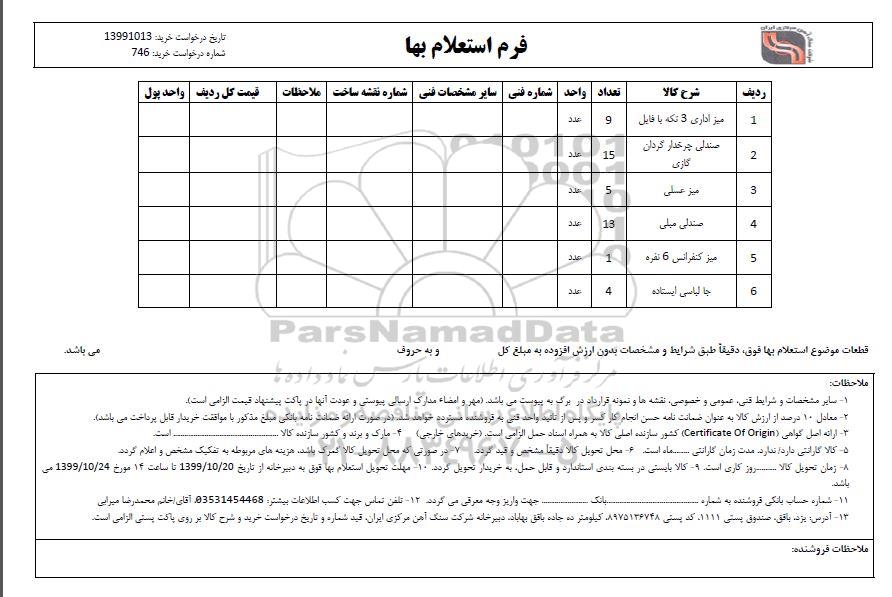 تاریخ درخواست خرید: 13991013
شماره درخواست خرید: 746
فرم استعلام بها
ردیف شرح کالا تعداد واحد شماره فنی سایر مشخصات فنی شماره نقشه ساخت ملاحظات قیمت کل ردیف واحد پول
1 میز اداری 3 تکه با فایل 9 عدد
2 صندلی چرخدار گردان گازی 15 عدد
3 میز عسلی 5 عدد
4 صندلی مبلی 13 عدد
5 میز کنفرانس 6 نفره 1 عدد
6 جا لباسی ایستاده 4 عدد
ParsNamadData
قطعات موضوع استعلام بها فوق، دقیقاً طبق شرایط و مشخصات بدون ارزش افزوده به مبلغ کل و به حروف می باشد.
ملاحظات:
۱- سایر مشخصات و شرایط فنی، عمومی و خصوصی، نقشه ها و نمونه قرارداد در برگ به پیوست می باشد. (مهر و امضاء مدارک ارسالی پیوستی و عودت آنها در پاکت پیشنهاد قیمت الزامی است).
۲- معادل ۱۰ درصد از ارزش کالا به عنوان ضمانت نامه حسن انجام کار کسر و پس از تائید واحد فنی به فروشنده مسترد خواهد شد. (در صورت ارائه ضمانت نامه بانکی مبلغ مذکور با موافقت خریدار قابل پرداخت می باشد).
۳- ارائه اصل گواهی (Certificate Of Origin) کشور سازنده اصلی کالا به همراه اسناد حمل الزامی است (خریدهای خارجی) ۴- مارک و برند و کشور سازنده کالا .................... است.
۵- کالا گارانتی دارد/ ندارد. مدت زمان گارانتی .........ماه است. ۶- محل تحویل کالا دقیقاً مشخص و قید گردد. ۷- در صورتی که محل تحویل کالا گمرک باشد، هزینه های مربوطه به تفکیک مشخص و اعلام گردد.
۸- زمان تحویل کالا ..........روز کاری است. ۹- کالا بایستی در بسته بندی استاندارد و قابل حمل، به خریدار تحویل گردد. ۱۰- مهلت تحویل استعلام بها فوق به دبیرخانه از تاریخ 1399/10/20 تا ساعت ۱۴ مورخ 1399/10/24 می باشد.
۱۱- شماره حساب بانکی فروشنده به شماره ....................بانک .................... جهت واریز وجه معرفی می گردد. ۱۲- تلفن تماس جهت کسب اطلاعات بیشتر: 03531454468، آقای/خانم محمدرضا میرابی
۱۳- آدرس: یزد، بافق، صندوق پستی ۱۱۱۱، کد پستی ۸۹۷۵۱۳۶۷۴۸، کیلومتر ده جاده بافق بهاباد، دبیرخانه شرکت سنگ آهن مرکزی ایران، قید شماره و تاریخ درخواست خرید و شرح کالا بر روی پاکت پستی الزامی است.
ملاحظات فروشنده: